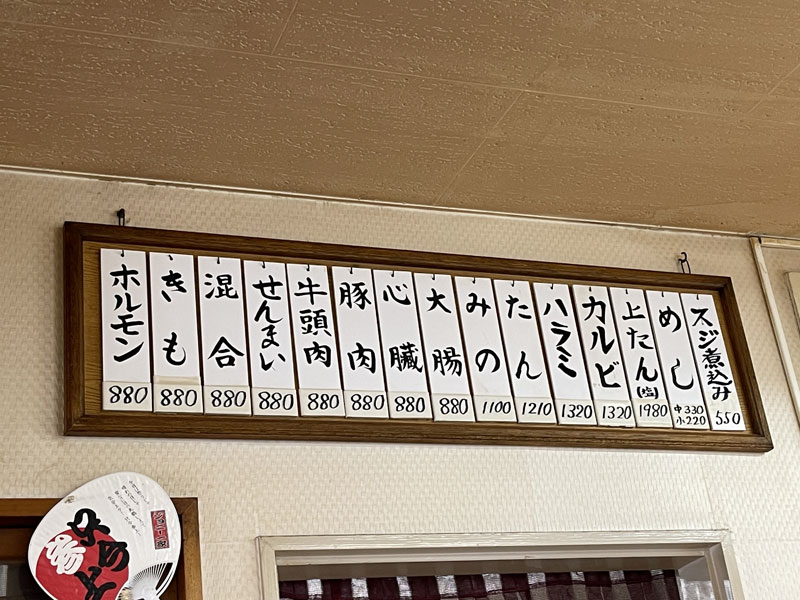 スジ煮込み 550
めし 中330 小220
上たん(塩) 1980
カルビ 1320
ハラミ 1320
たん 1210
みの 1100
大腸 880
心臓 880
豚肉 880
牛頭肉 880
せんまい 880
混合 880
きも 880
ホルモン 880